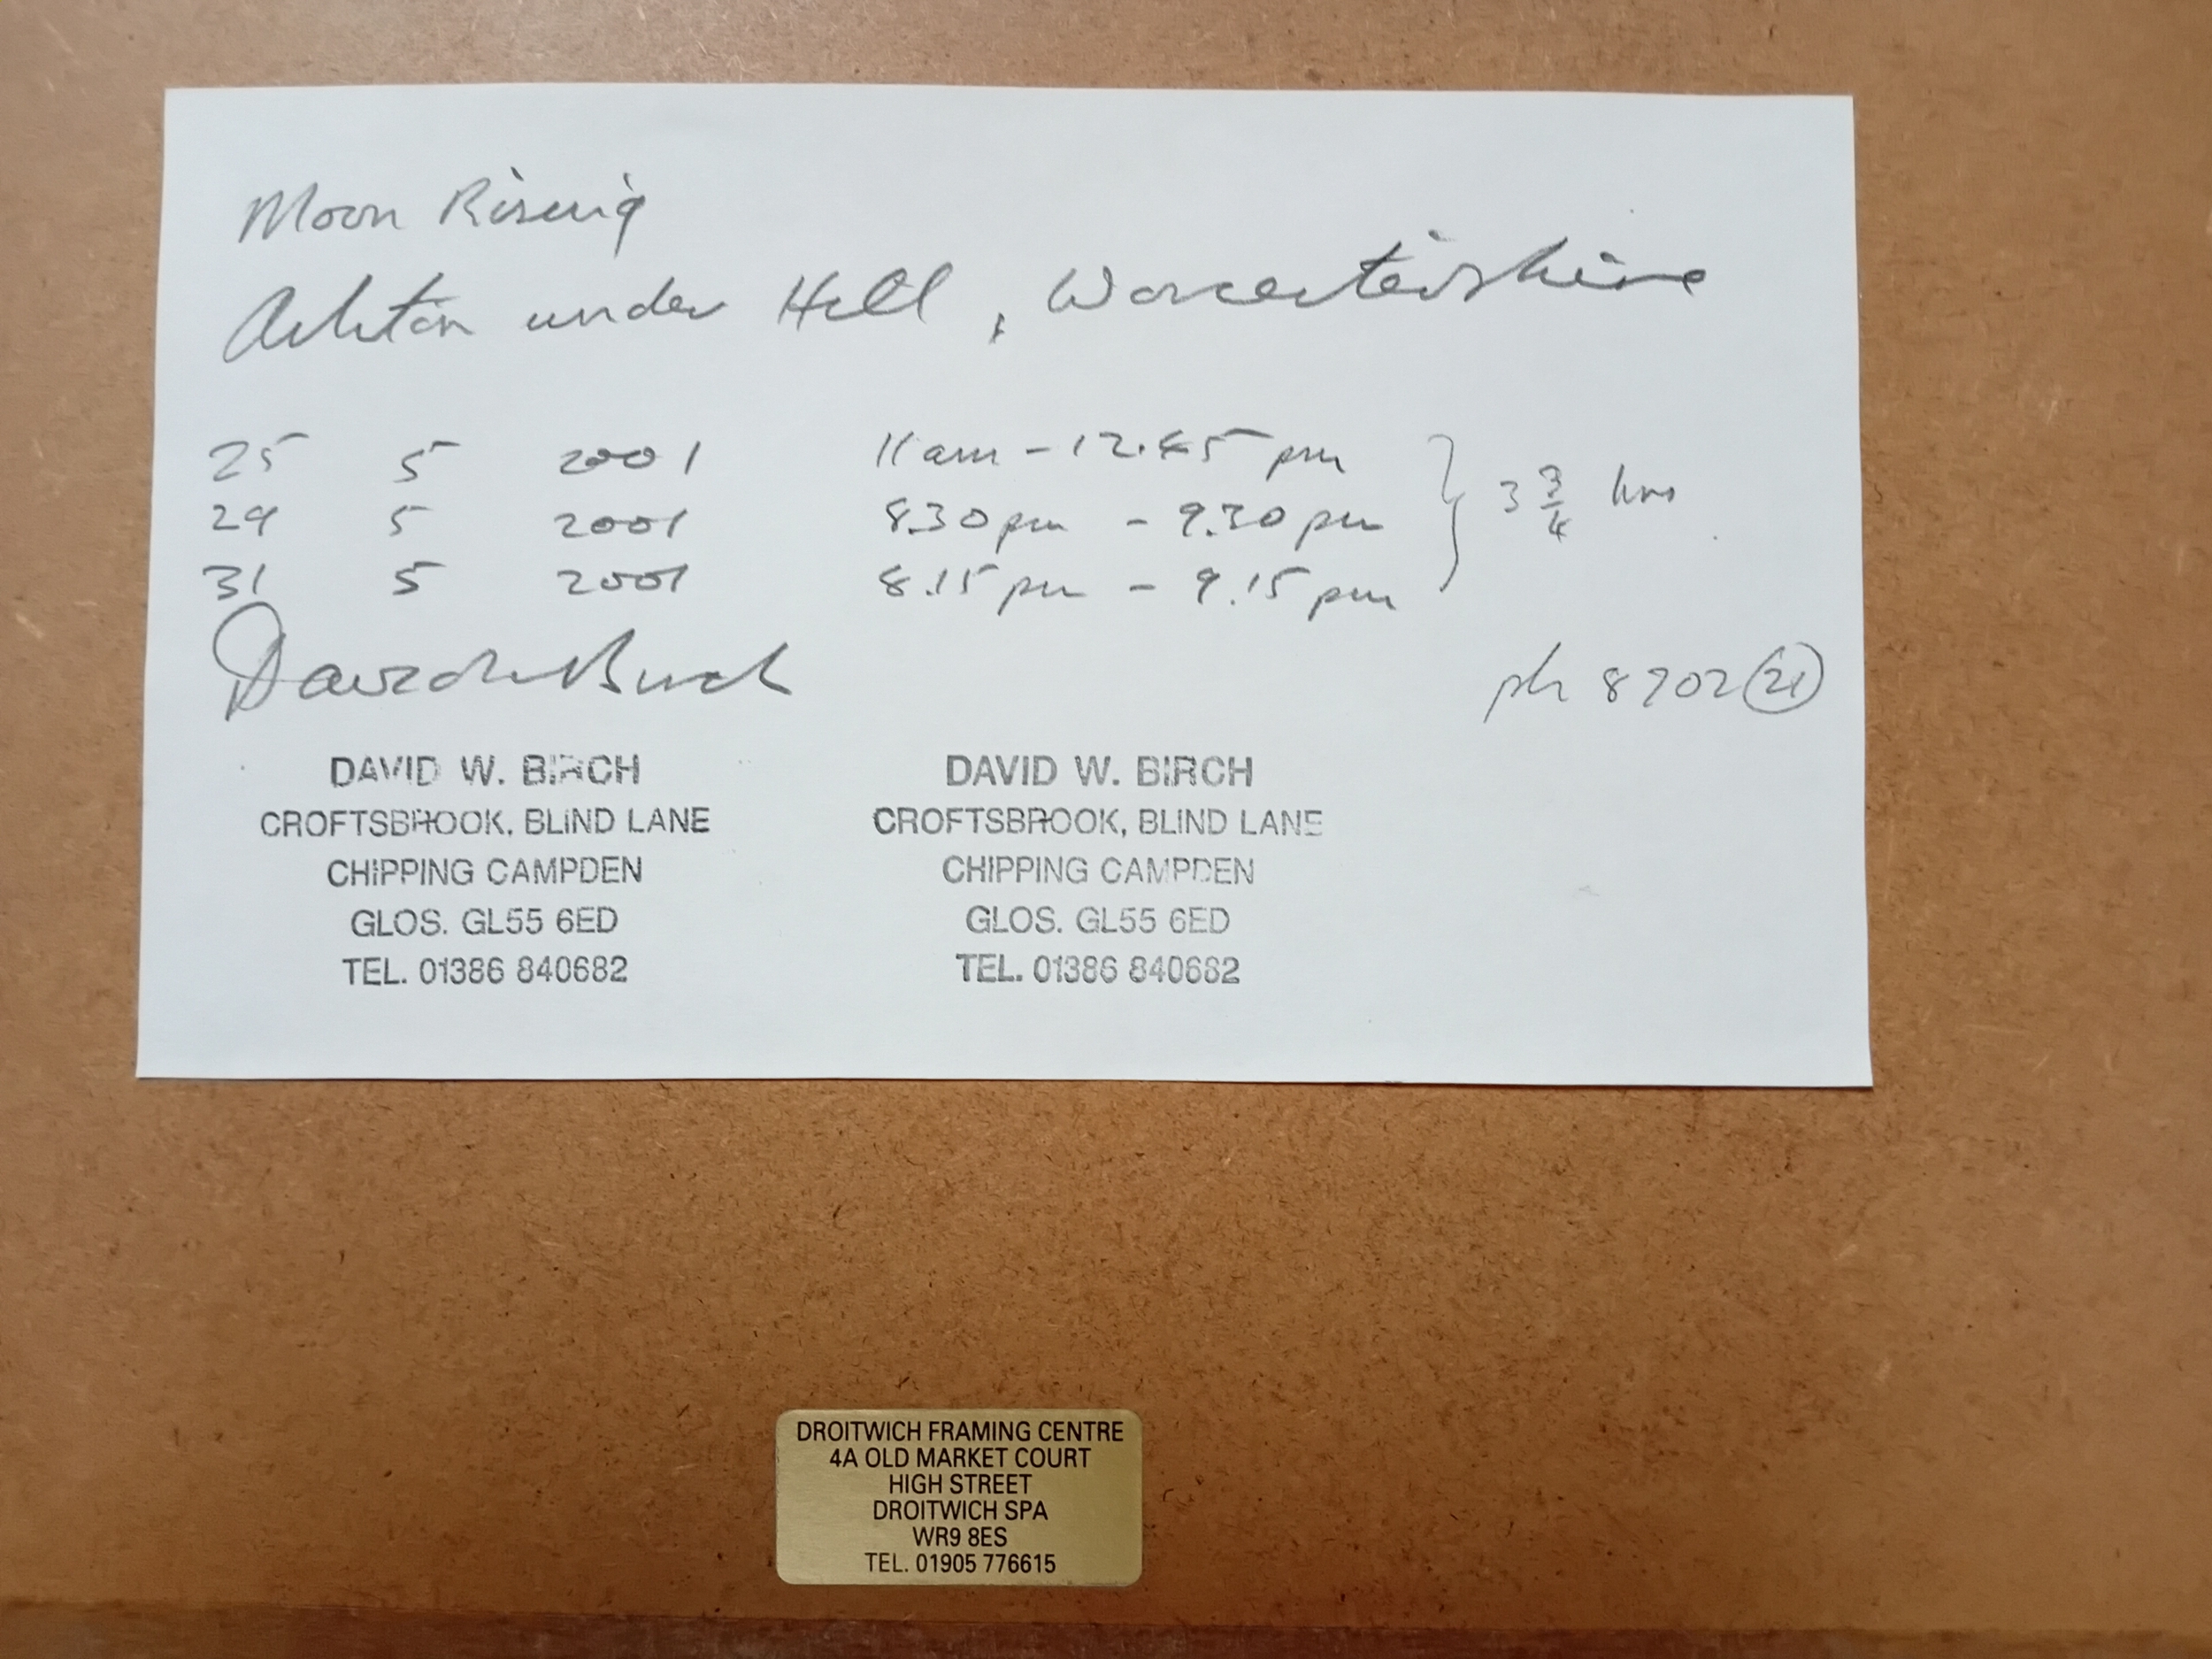 Moon Rising
Ashton under Hill, Worcestershire
25 5 2001 11am - 12.45 pm
29 5 2001 8.30pm - 9.30pm } 3 3/4 hrs
31 5 2001 8.15pm - 9.15pm
David Birch
ph 8702 (21)
DAVID W. BIRCH
CROFTSBROOK, BLIND LANE
CHIPPING CAMPDEN
GLOS. GL55 6ED
TEL. 01386 840682
DAVID W. BIRCH
CROFTSBROOK, BLIND LANE
CHIPPING CAMPDEN
GLOS. GL55 6ED
TEL. 01386 840682
DROITWICH FRAMING CENTRE
4A OLD MARKET COURT
HIGH STREET
DROITWICH SPA
WR9 8ES
TEL. 01905 776615